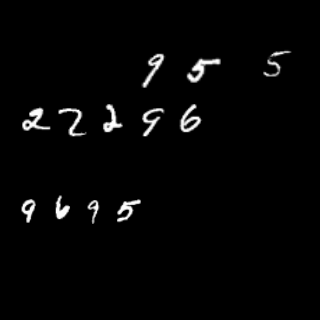 9 5 5
2 2 2 9 6
9 6 9 5